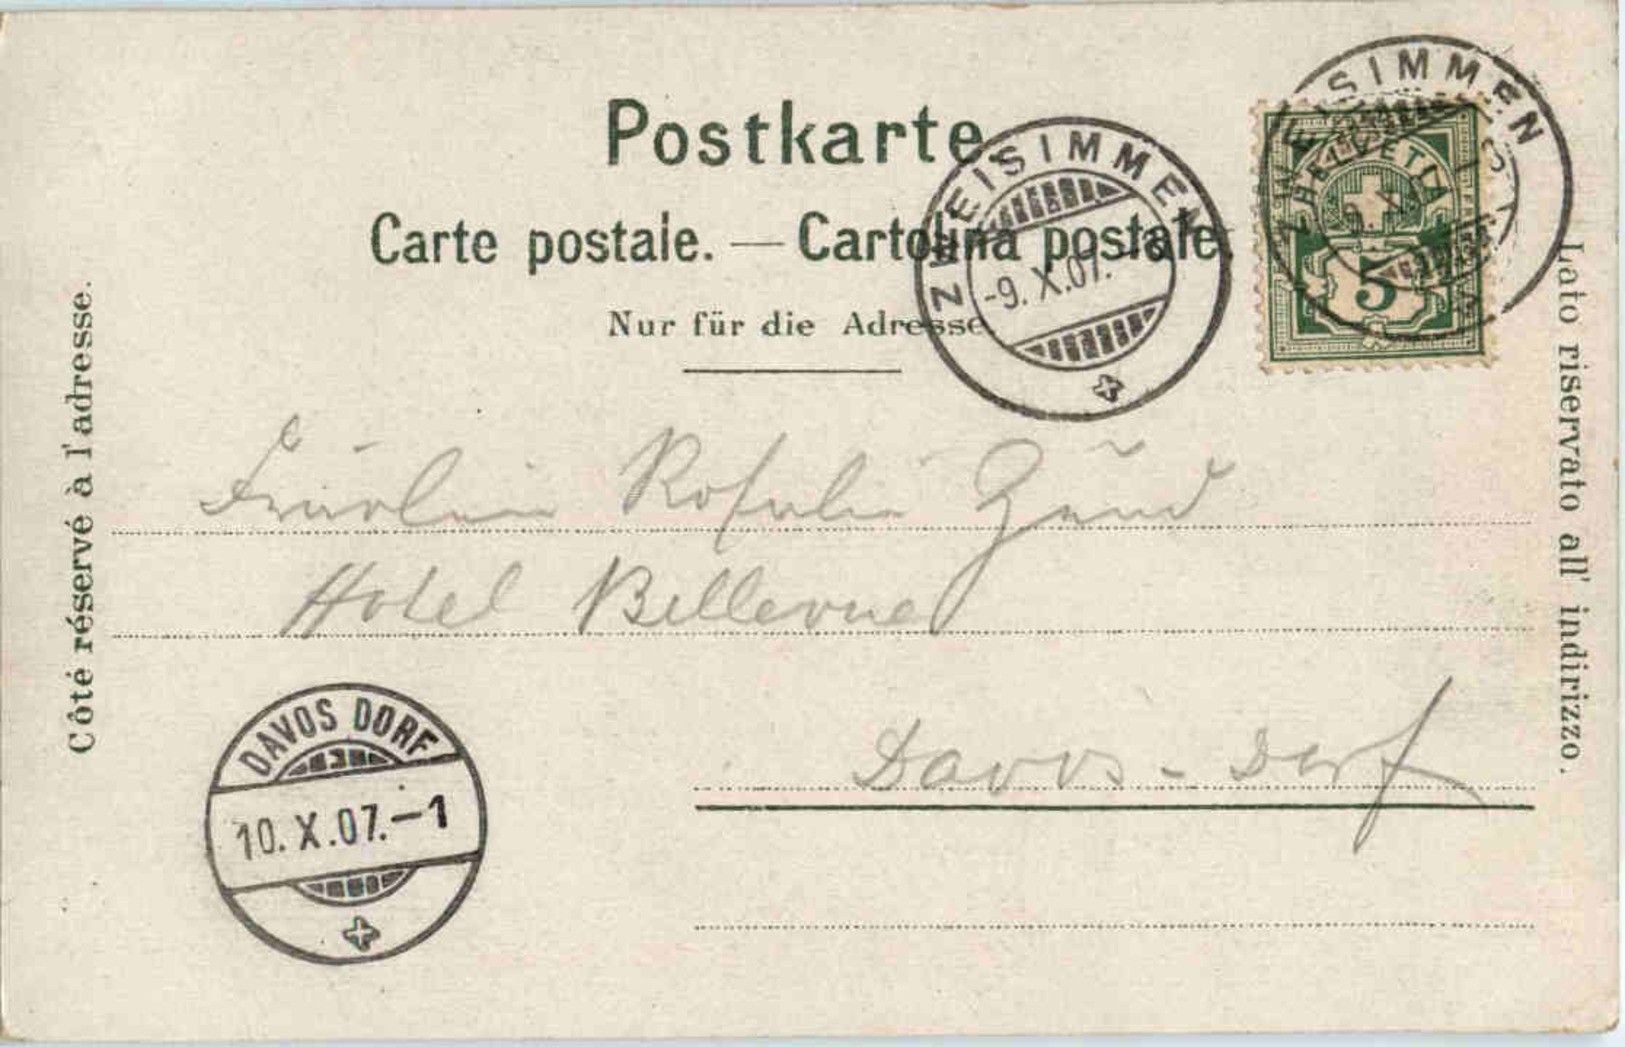 Postkarte.
Carte postale. — Cartolina postale.
Nur für die Adresse.
Côté réservé à l'adresse.
Lato riservato all' indirizzo.
ZWEISIMMEN
-9. X. 07. -8
ZWEISIMMEN
HELVETIA
5
Fräulein Rosalie Zünd
Hotel Bellevue
Davos-Dorf
DAVOS DORF
10. X. 07. —1